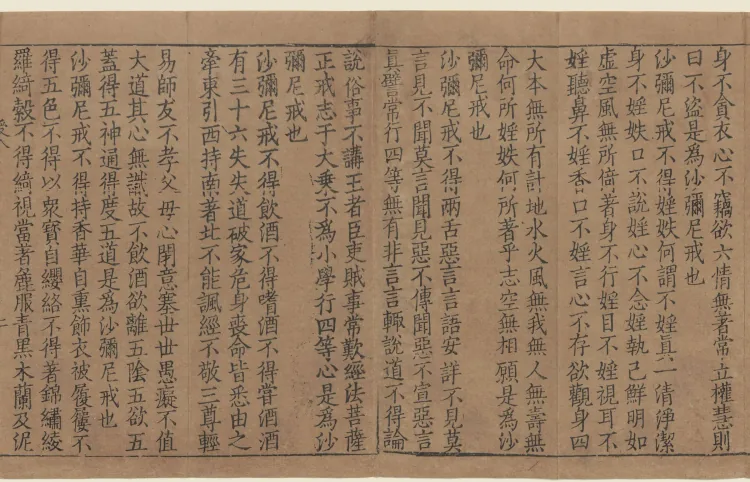 身不貪衣心不竊欲六情無著常立權慧則
曰不盜是為沙彌尼戒也
沙彌尼戒不得婬妷何謂不婬真一清淨潔
身不婬妷口不說婬心不念婬執己鮮明如
虛空風無所倚著身不行婬目不婬視耳不
婬聽鼻不婬香口不婬言心不存欲觀身四
大本無所有計地水火風無我無人無壽無
命何所婬妷何所著乎志空無相願是為沙
彌尼戒也
沙彌尼戒不得兩舌惡言言語安詳不見莫
言見不聞莫言聞見惡不傳聞惡不宣惡言
直譬常行四等無有非言言輒說道不得論
說俗事不講王者臣吏賊事常歎經法菩薩
正戒志于大乘不為小學行四等心是為沙
彌尼戒也
沙彌尼戒不得飲酒不得嗜酒不得嘗酒酒
有三十六失失道破家危身喪命皆悉由之
牽東引西持南著北不能諷經不敬三尊輕
易師友不孝父母心閉意塞世世愚癡不值
大道其心無識故不飲酒欲離五陰五欲五
蓋得五神通得度五道是為沙彌尼戒也
沙彌尼戒不得持香華自熏飾衣被履屨不
得五色不得以眾寶自纓絡不得著錦繡綾
羅綺縠不得綺視當著麁服青黑木蘭及泥